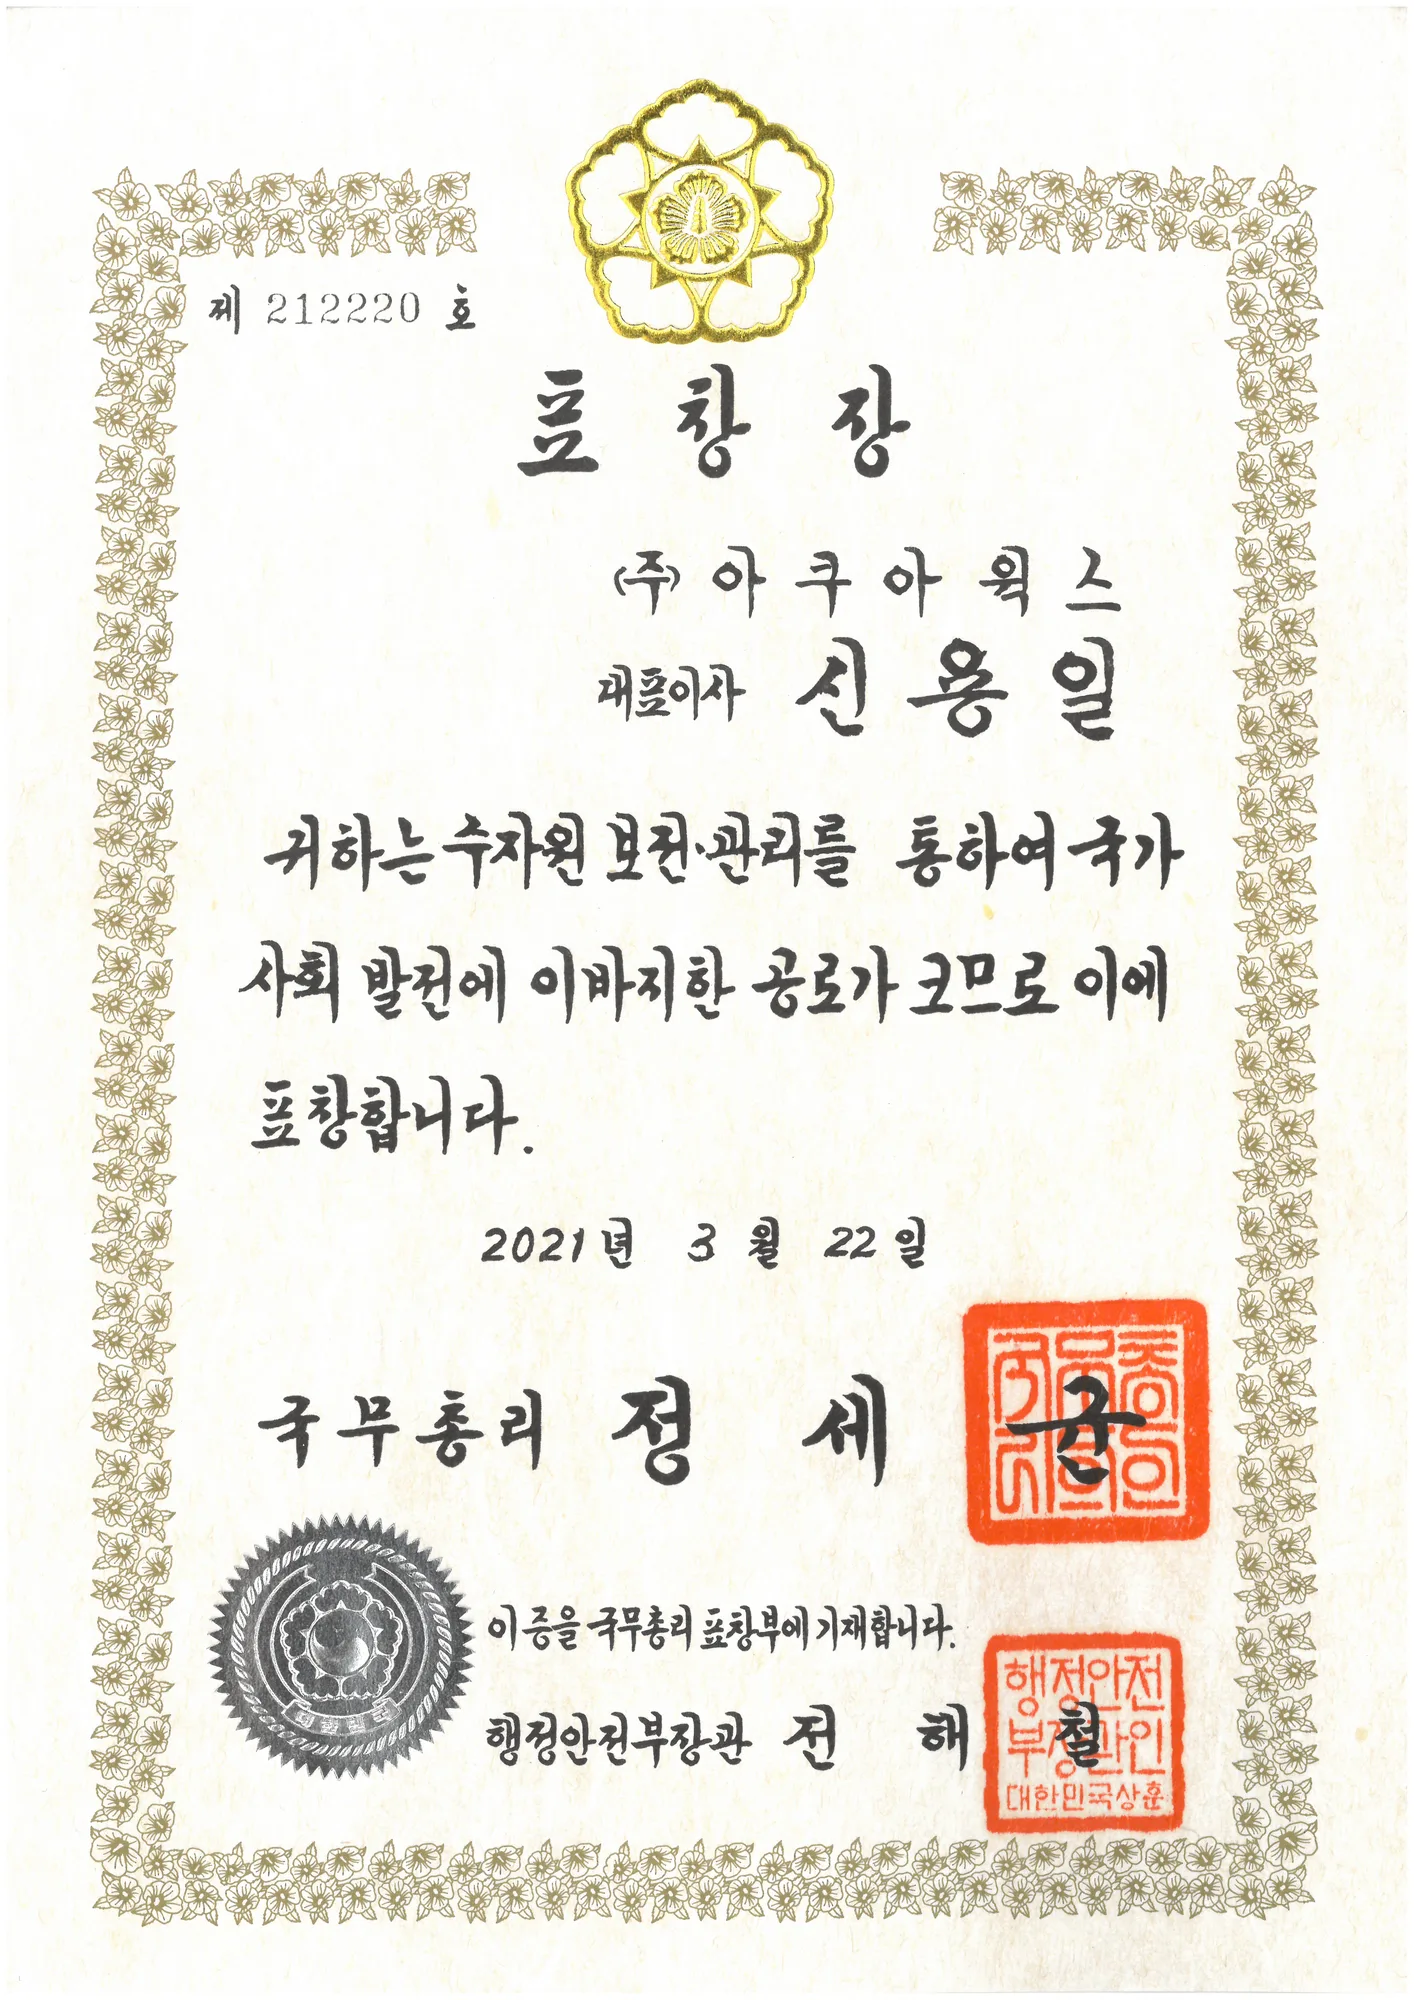 제 212220 호
표 창 장
(주) 아 쿠 아 웍 스
대표이사 신 용 일
귀하는 수자원 보전·관리를 통하여 국가
사회 발전에 이바지한 공로가 크므로 이에
표창합니다.
2021년 3월 22일
국무총리 정 세 균
이 증을 국무총리 표창부에 기재합니다.
행정안전부장관 전 해 철
행정안전
부장관인
대한민국상훈